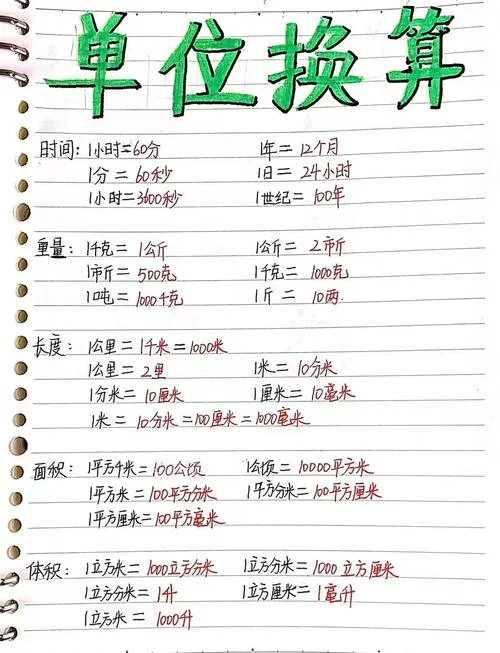 单位换算
时间: 1小时=60分 1年=12个月
1分=60秒 1日=24小时
1小时=3600秒 1世纪=100年
重量: 1千克=1公斤 1公斤=2市斤
1市斤=500克 1千克=1000克
1吨=1000千克 1斤=10两.
长度: 1公里=1千米=1000米
1公里=2里 1米=10分米
1分米=10厘米 1厘米=10毫米
1米=10分米=100厘米=1000毫米
面积: 1平方千米=100公顷 1公顷=10000平方米
1平方米=100平方分米 1平方分米=100平方厘米
1平方厘米=100平方毫米
体积: 1立方米=1000立方分米 1立方分米=1000立方厘米
1立方分米=1升 1立方厘米=1毫升
1立方米=1000升